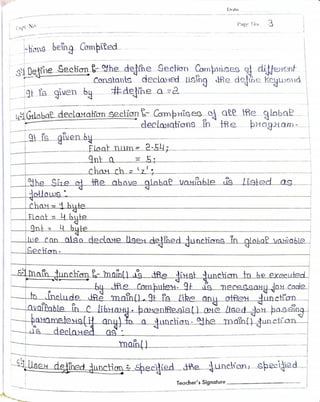 Date
Expt. No.
Page No. 3
-tions being Compiled.
3) Define Section :- The define Section Comprises of different
Constants declared using the define keyword
It is given by #define a = 2
4) Global declaration section :- Comprises of all the global
declarations in the program.
It is given by
Float num = 2.54;
Int a = 5;
char ch = 'z';
The Size of the above global variable is listed as
follows :
Char = 1 byte
Float = 4 byte
Int = 4 byte
we can also declare User defined functions in global variable
Section.
5) main function :- main() is the first function to be executed
by the Computer. It is necessary for code
to include the main(). It is like any other function
available in C library. parenthesis() are Used for passing
parameters (if any) to a function. The main() function
is declared as :
main()
6) User defined function : Specified the function, specified
Teacher's Signature